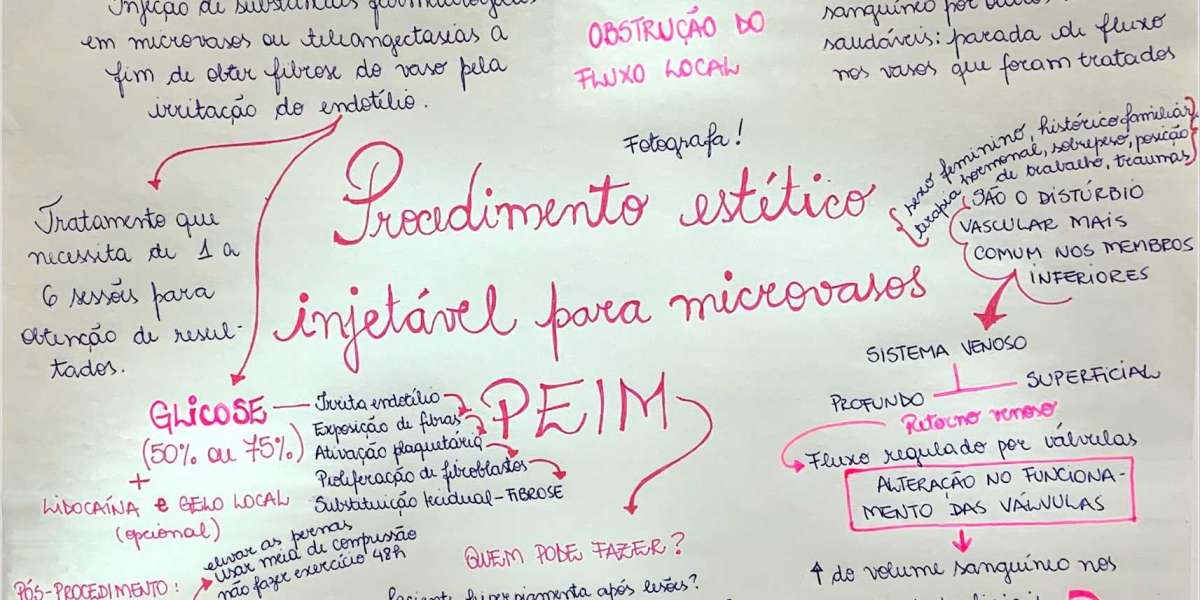 Injeção de substâncias
em microvasos ou teleangectasias a
fim de obter fibrose do vaso pela
irritação do endotélio.
OBSTRUÇÃO DO
FLUXO LOCAL
sanguíneo por
saudáveis: parada de fluxo
nos vasos que foram tratados
Fotografa!
Procedimento estético
injetável para microvasos
PEIM
Tratamento que
necessita de 1 a
6 sessões para
obtenção de resul-
tados.
GLICOSE
(50% ou 75%)
+
LIDOCAÍNA e GELO LOCAL
(opcional)
Irrita endotélio
Exposição de fibras
Ativação plaquetária
Proliferação de fibroblastos
Substituição tecidual - FIBROSE
PÓS-PROCEDIMENTO:
elevar as pernas
usar meia de compressão
não fazer exercício 48h
QUEM PODE FAZER?
hiperpigmenta após lesões?
sexo feminino, histórico familiar,
terapia hormonal, sobrepeso, posição
de trabalho, traumas
SÃO O DISTÚRBIO
VASCULAR MAIS
COMUM NOS MEMBROS
INFERIORES
SISTEMA VENOSO
PROFUNDO
SUPERFICIAL
Retorno venoso
Fluxo regulado por válvulas
ALTERAÇÃO NO FUNCIONA-
MENTO DAS VÁLVULAS
↑ do volume sanguíneo nos